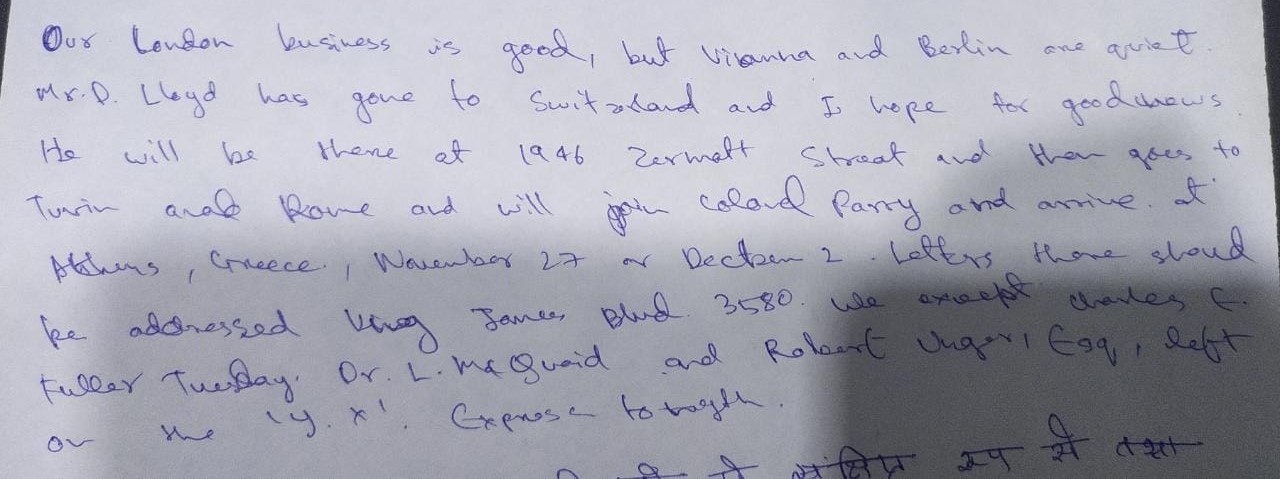 Our London business is good, but Vienna and Berlin are quiet.
Mr. D. Lloyd has gone to Switzland and I hope for good news.
He will be there at 1946 Zermatt Street and then goes to
Turin and Rome and will join Colond Parry and arrive. at
Athens, Greece., November 27 or Dectbem 2. Letters there shoud
be addressed King James Blvd. 3580. We except Charles E.
Fuller Tuesday. Dr. L. McQuaid and Robert Unger, Esq, left
on the 'Y. X'. Express
संक्षिप्त रूप से तथा